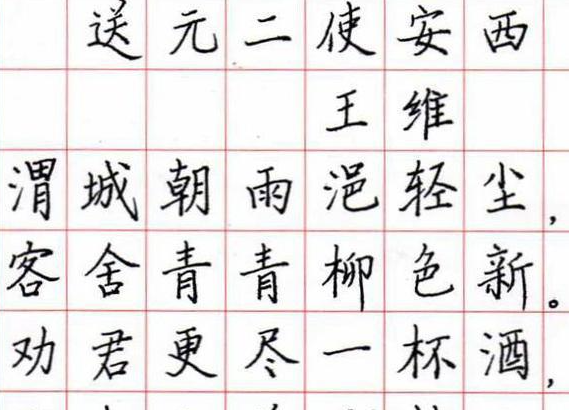 送元二使安西
王维
渭城朝雨浥轻尘，
客舍青青柳色新。
劝君更尽一杯酒，